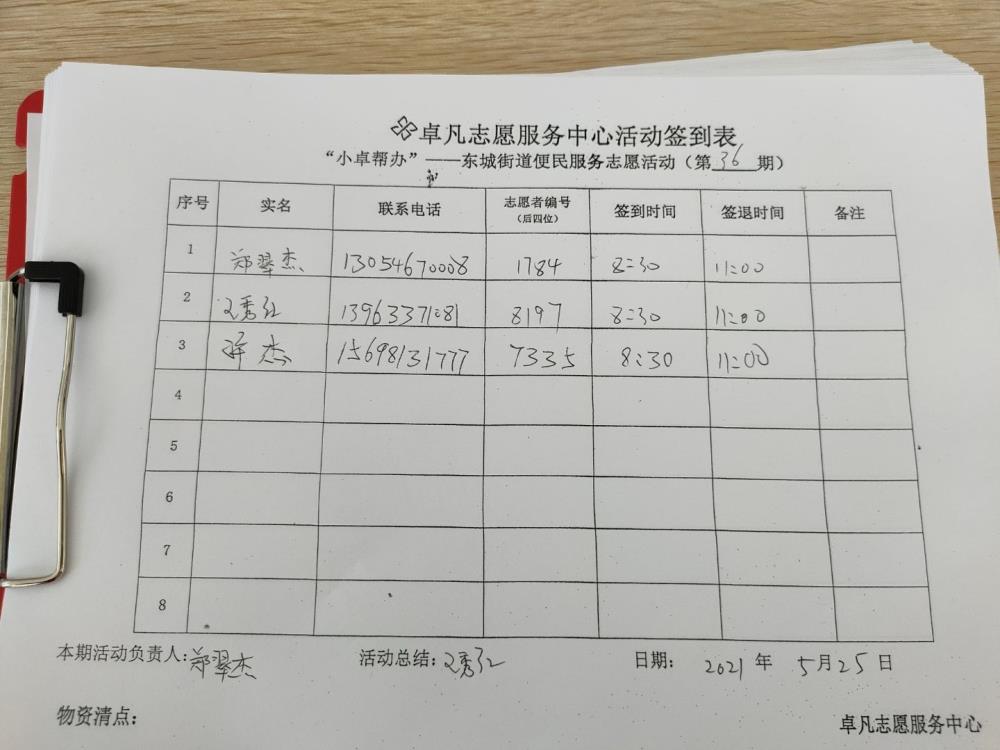 卓凡志愿服务中心活动签到表
“小卓帮办”——东城街道便民服务志愿活动（第36期）
序号 实名 联系电话 志愿者编号（后四位） 签到时间 签退时间 备注
1 郑翠杰 13054670008 1784 8:30 11:00
2 秀红 8197 8:30 11:00
3 杰 15698131777 7335 8:30 11:00
4
5
6
7
8
本期活动负责人：郑翠杰 活动总结：秀红 日期：2021年5月25日
物资清点：
卓凡志愿服务中心